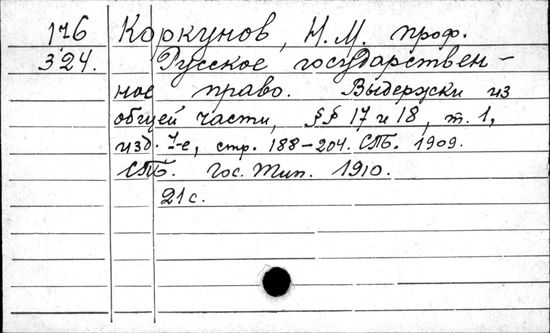 176 Коркунов, Н.М. проф.
324. Русское государствен-
ное право. Выдержки из
общей части, §§ 17 и 18, т. 1,
изд. 7-е, стр. 188-204. СПБ. 1909.
СПБ. Гос. Тип. 1910.
21 с.